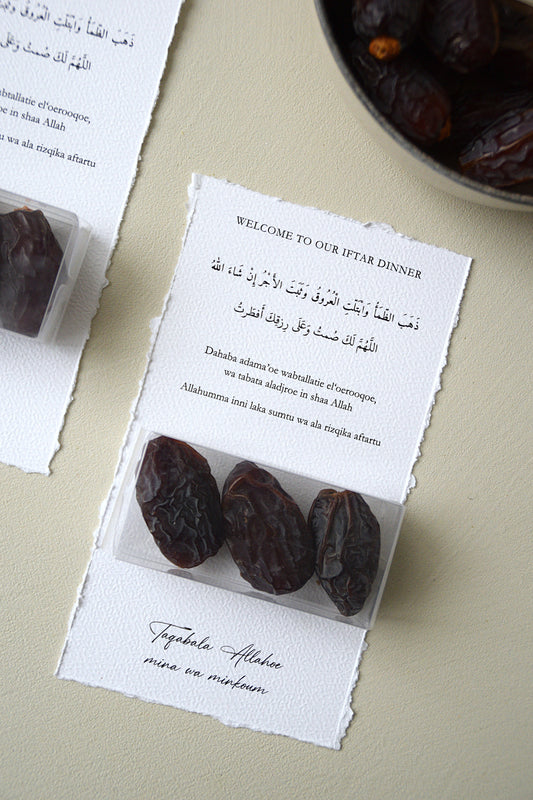 ذَهَبَ الظَّمَأُ وَابْتَلَّتِ الْعُرُوقُ
اللَّهُمَّ لَكَ صُمتُ وَعَلَى
wabtallatie el'oerooqe,
in shaa Allah
wa ala rizqika aftartu
WELCOME TO OUR IFTAR DINNER
ذَهَبَ الظَّمَأُ وَابْتَلَّتِ الْعُرُوقُ وَثَبَتَ الأَجْرُ إِنْ شَاءَ اللهُ
اللَّهُمَّ لَكَ صُمتُ وَعَلَى رِزقِكَ أَفطَرتُ
Dahaba adama'oe wabtallatie el'oerooqe,
wa tabata aladjroe in shaa Allah
Allahumma inni laka sumtu wa ala rizqika aftartu
Taqabala Allahoe
mina wa minkoum